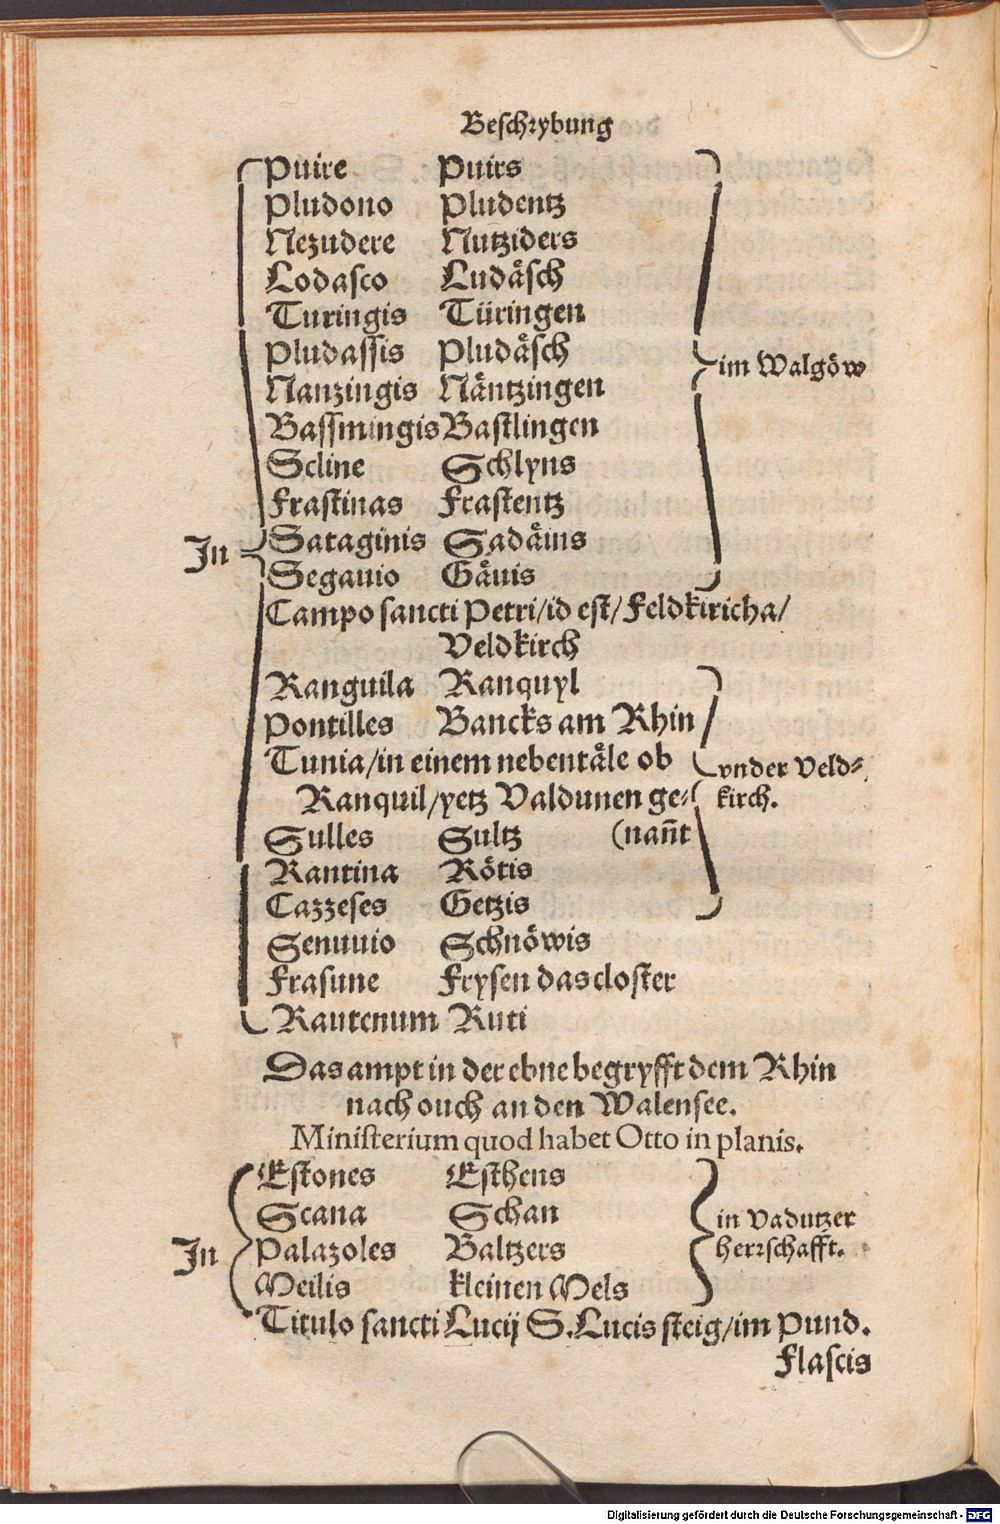 Beschrybung
Puire Puirs
Pludono Pludentz
Nezudere Nutziders
Lodasco Ludåsch
Turingis Türingen
Pludassis Pludåsch
im Walgöw
Nanzingis Nåntzingen
Bassmingis Bastlingen
Scline Schlyns
Frastinas Frastentz
Sataginis Sadåins
In
Segauio Gåuis
Campo sancti Petri/id est/Feldkiricha/
Veldkirch
Ranguila Ranquyl
Pontilles Bancks am Rhin
Tunia/in einem nebentåle ob
vnder Veld⸗
Ranquil/yetz Valdunen ge⸗
kirch.
Sulles Sultz (nan̄t
Rantina Rötis
Cazzeses Getzis
Senuuio Schnöwis
Frasune Frysen das closter
Rautenum Ruti
Das ampt in der ebne begryfft dem Rhin
nach ouch an den Walensee.
Ministerium quod habet Otto in planis.
Estones Esthens
Scana Schan
in Vadutzer
In
Palazoles Baltzers
herrschafft.
Meilis kleinen Mels
Titulo sancti Lucij S. Lucis steig/im Pund.
Flascis
Digitalisierung gefördert durch die Deutsche Forschungsgemeinschaft - DFG